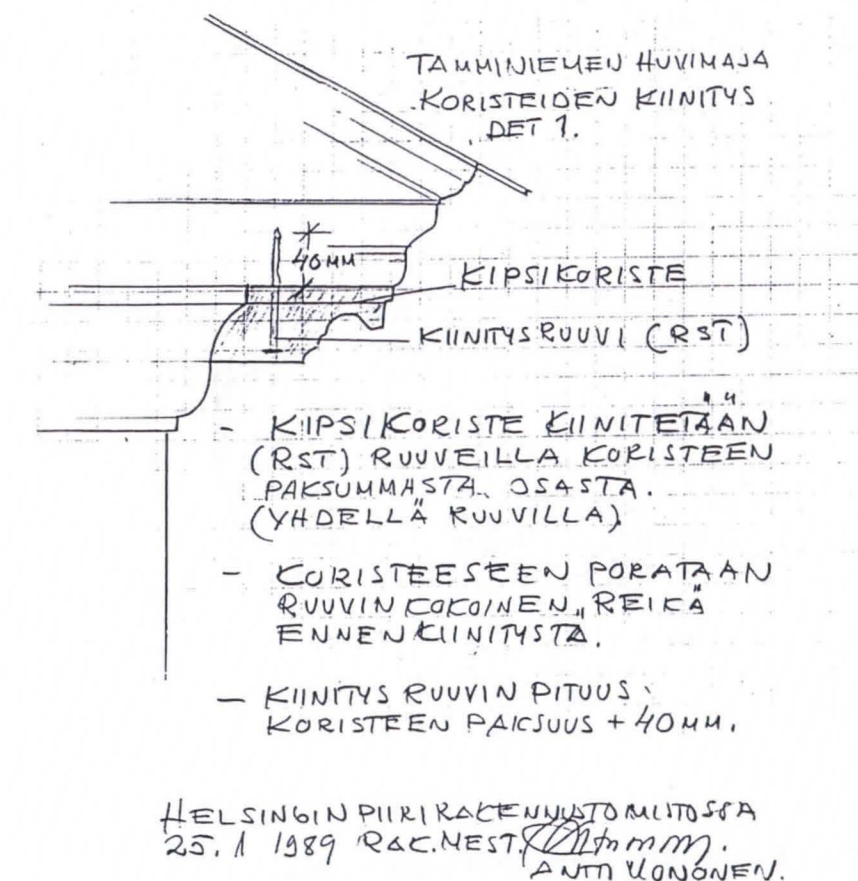 TAMMINIEMEN HUVIMAJA
KORISTEIDEN KIINITYS
DET 1.
40MM
KIPSIKORISTE
KIINITYSRUUVI (RST)
- KIPSIKORISTE KIINITETÄÄN
(RST) RUUVEILLA KORISTEEN
PAKSUMMASTA OSASTA.
(YHDELLÄ RUUVILLA).
- KORISTEESEEN PORATAAN
RUUVIN KOKOINEN REIKÄ
ENNEN KIINITYSTÄ.
- KIINITYS RUUVIN PITUUS
KORISTEEN PAKSUUS + 40MM.
HELSINGIN PIIRIRAKENNUSTOIMISTOSSA
25. 1 1989 RAK.MEST.
ANTTI